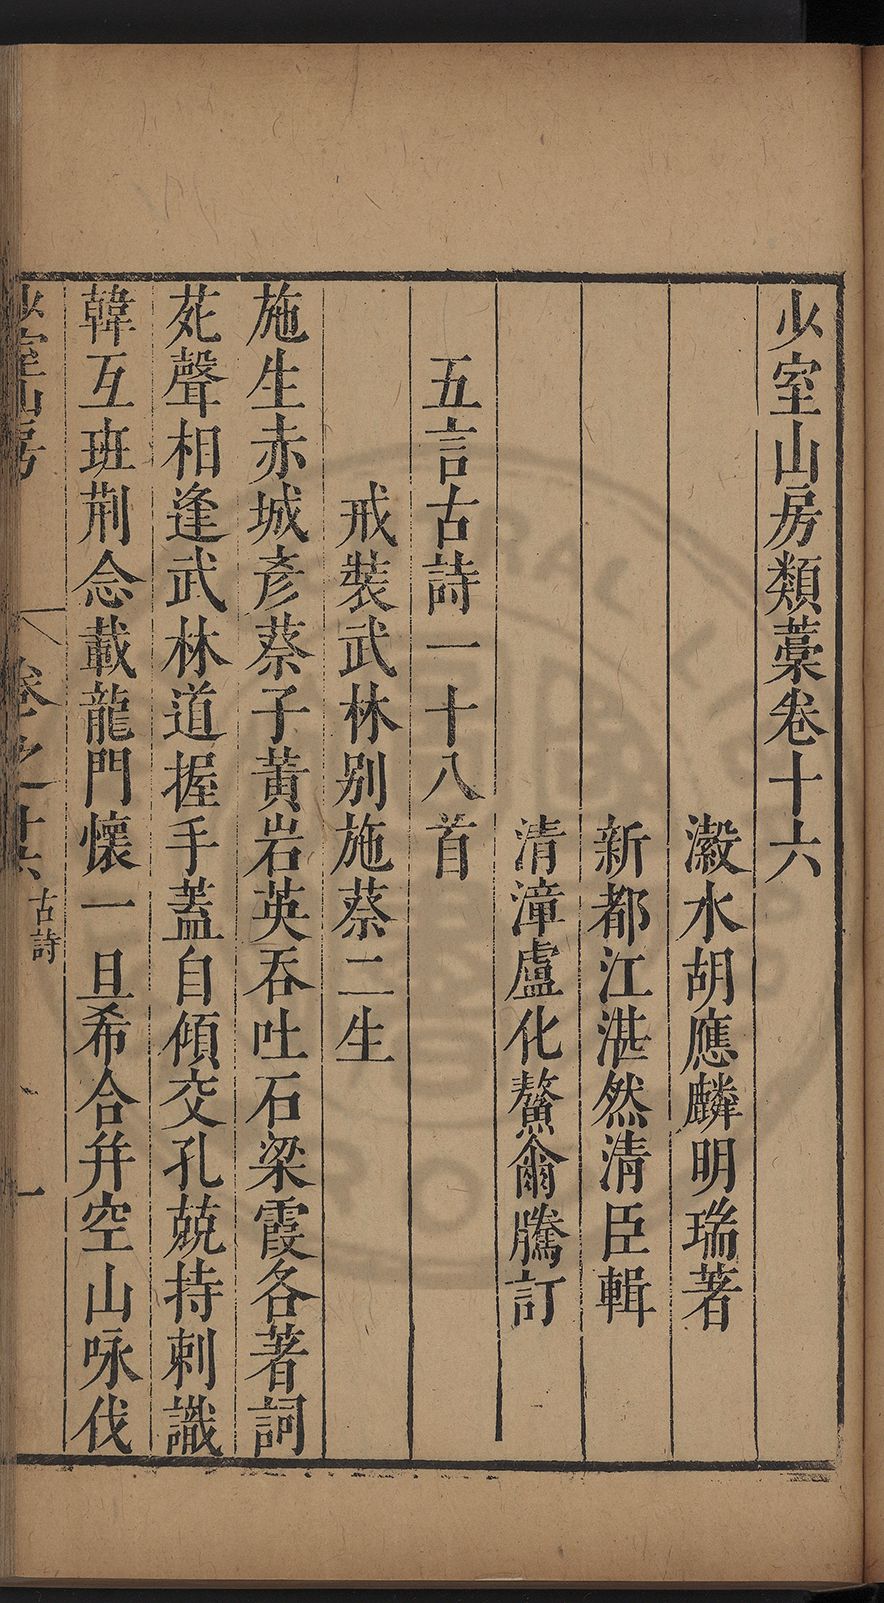 少室山房類藁卷十六
瀫水胡應麟明瑞著
新都江湛然清臣輯
清漳盧化鰲爾騰訂
五言古詩一十八首
戒裝武林别施蔡二生
施生赤城彥蔡子黃岩英吞吐石梁霞各著詞
苑聲相逢武林道握手蓋自傾交孔兢持刺識
韓互班荆念載龍門懷一旦希合幷空山咏伐
少室山房
卷之十六
古詩
一